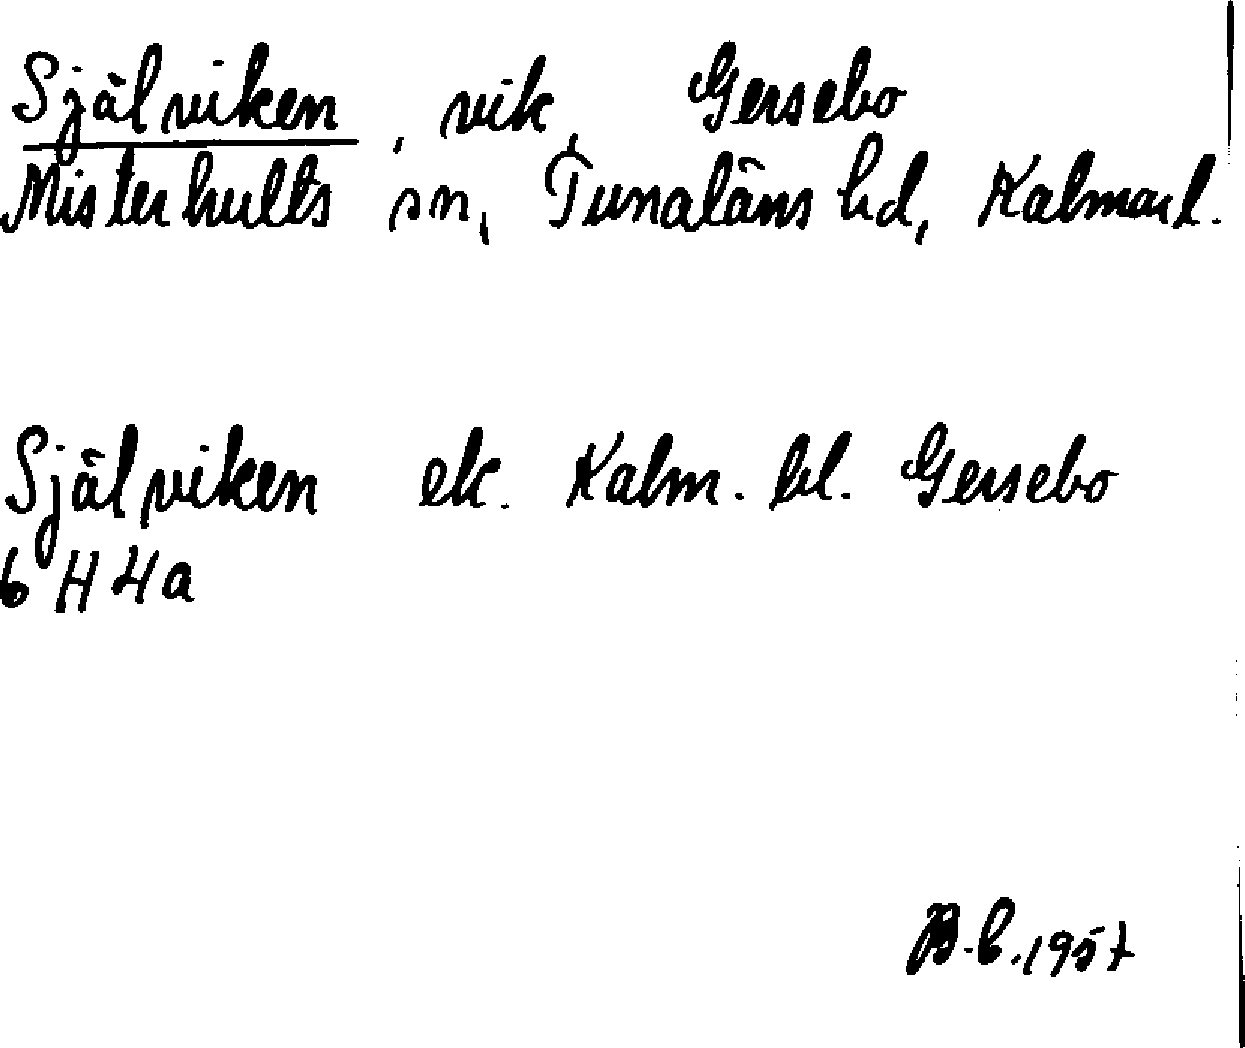 Själviken, vik, Gersebo
Misterhults sn, Tunaläns hd, Kalmar l.
Själviken ek. Kalm. bl. Gersebo
6 H 4a
B.b. 1957